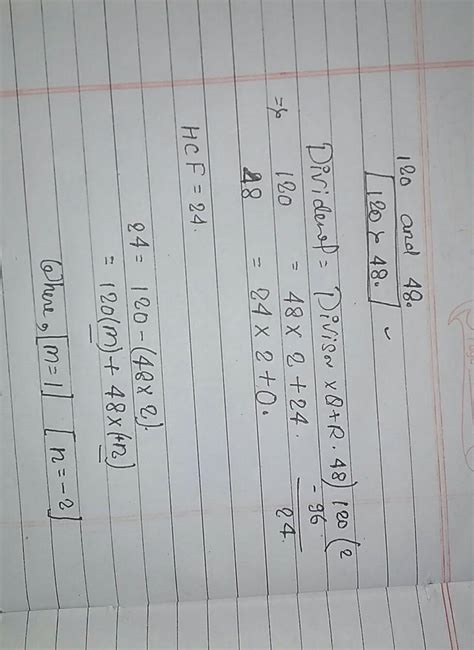 120 and 48.
[120 > 48.]
Dividend = Divisor × Q + R. 48) 120 (2
- 96
24
⇒ 120 = 48 × 2 + 24.
48 = 24 × 2 + 0.
HCF = 24.
24 = 120 - (48 × 2).
= 120(m) + 48 × (+n)
Where, [m = 1] [n = -2]